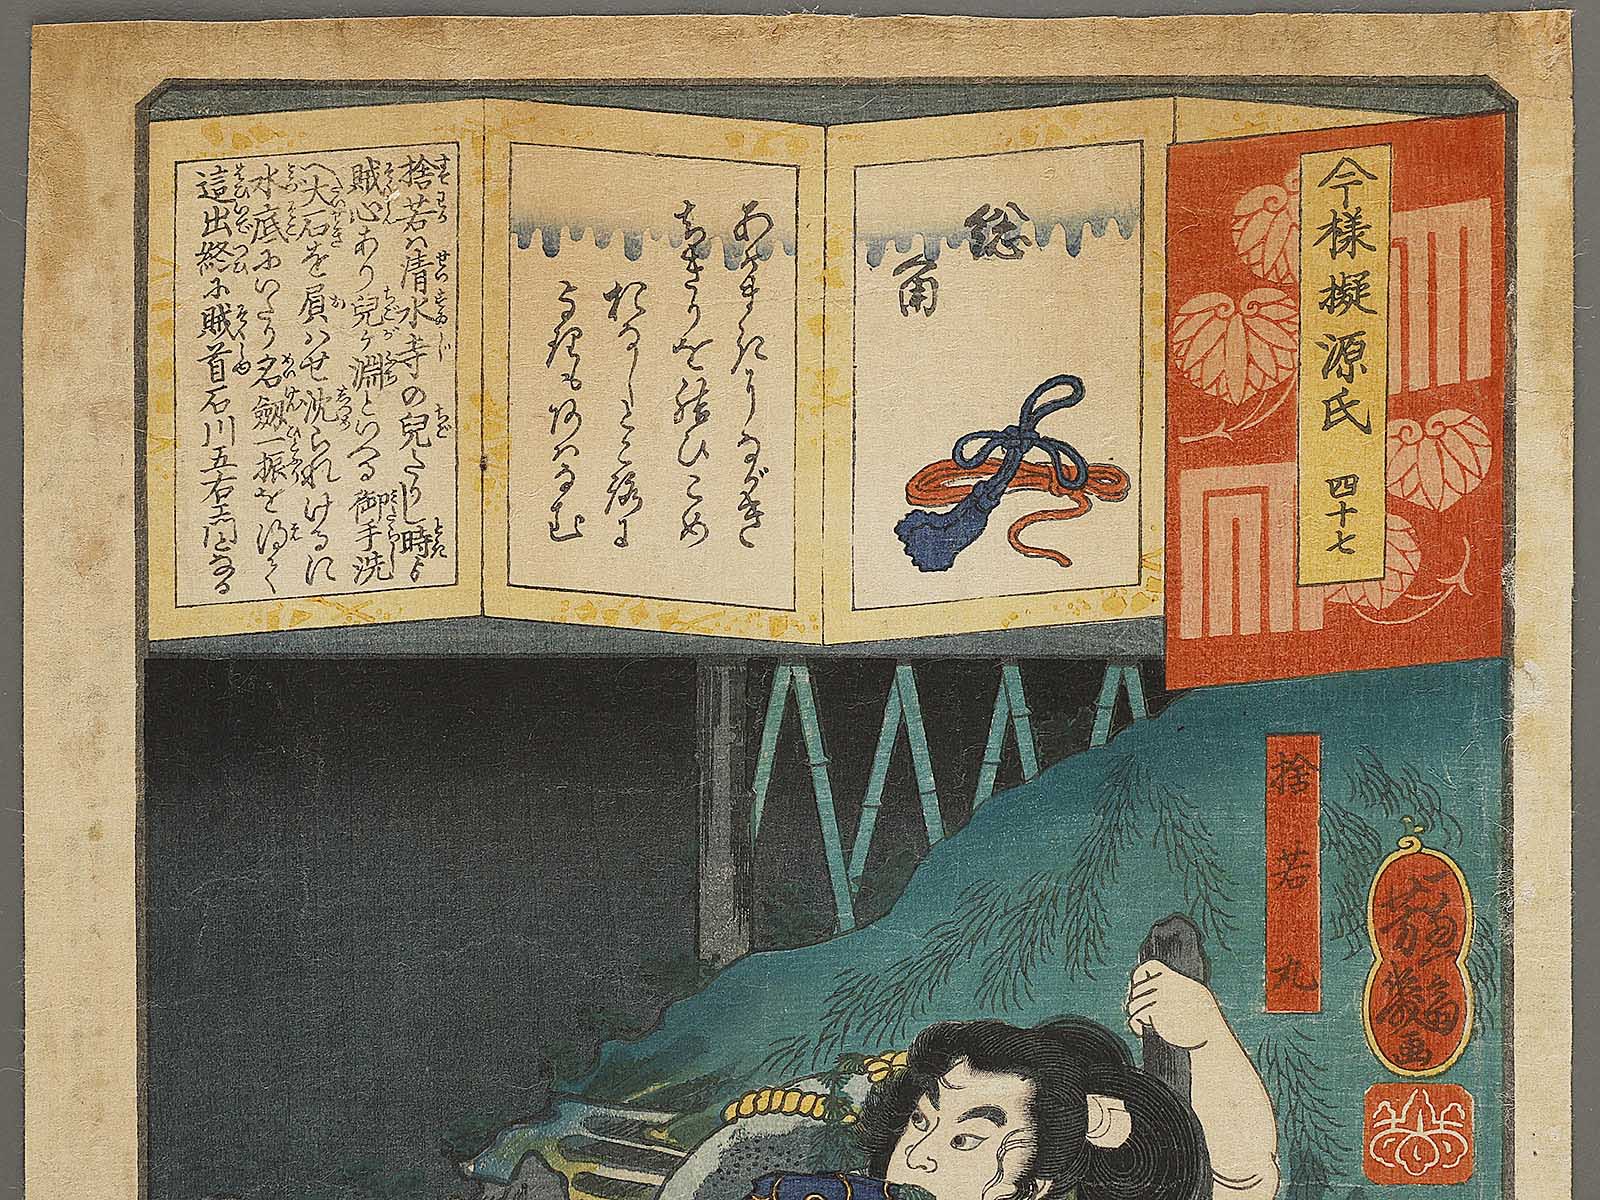 今様擬源氏 四十七
総角
あげまきにながき
ちぎりを結びこめ
おなしところに
よりもあはなむ
捨若ハ清水寺の兒たりし時より
賊心あり兒ヶ淵といへる御手洗
へ大石を屓ハせ沈られけるに
水底にいたり名劔一振を得て
這出終に賊首石川五右エ門となる
捨若丸
一蕙齋
芳幾画